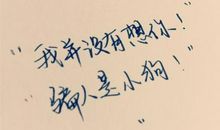 "我并没有想你！"
"骗人是小狗！"